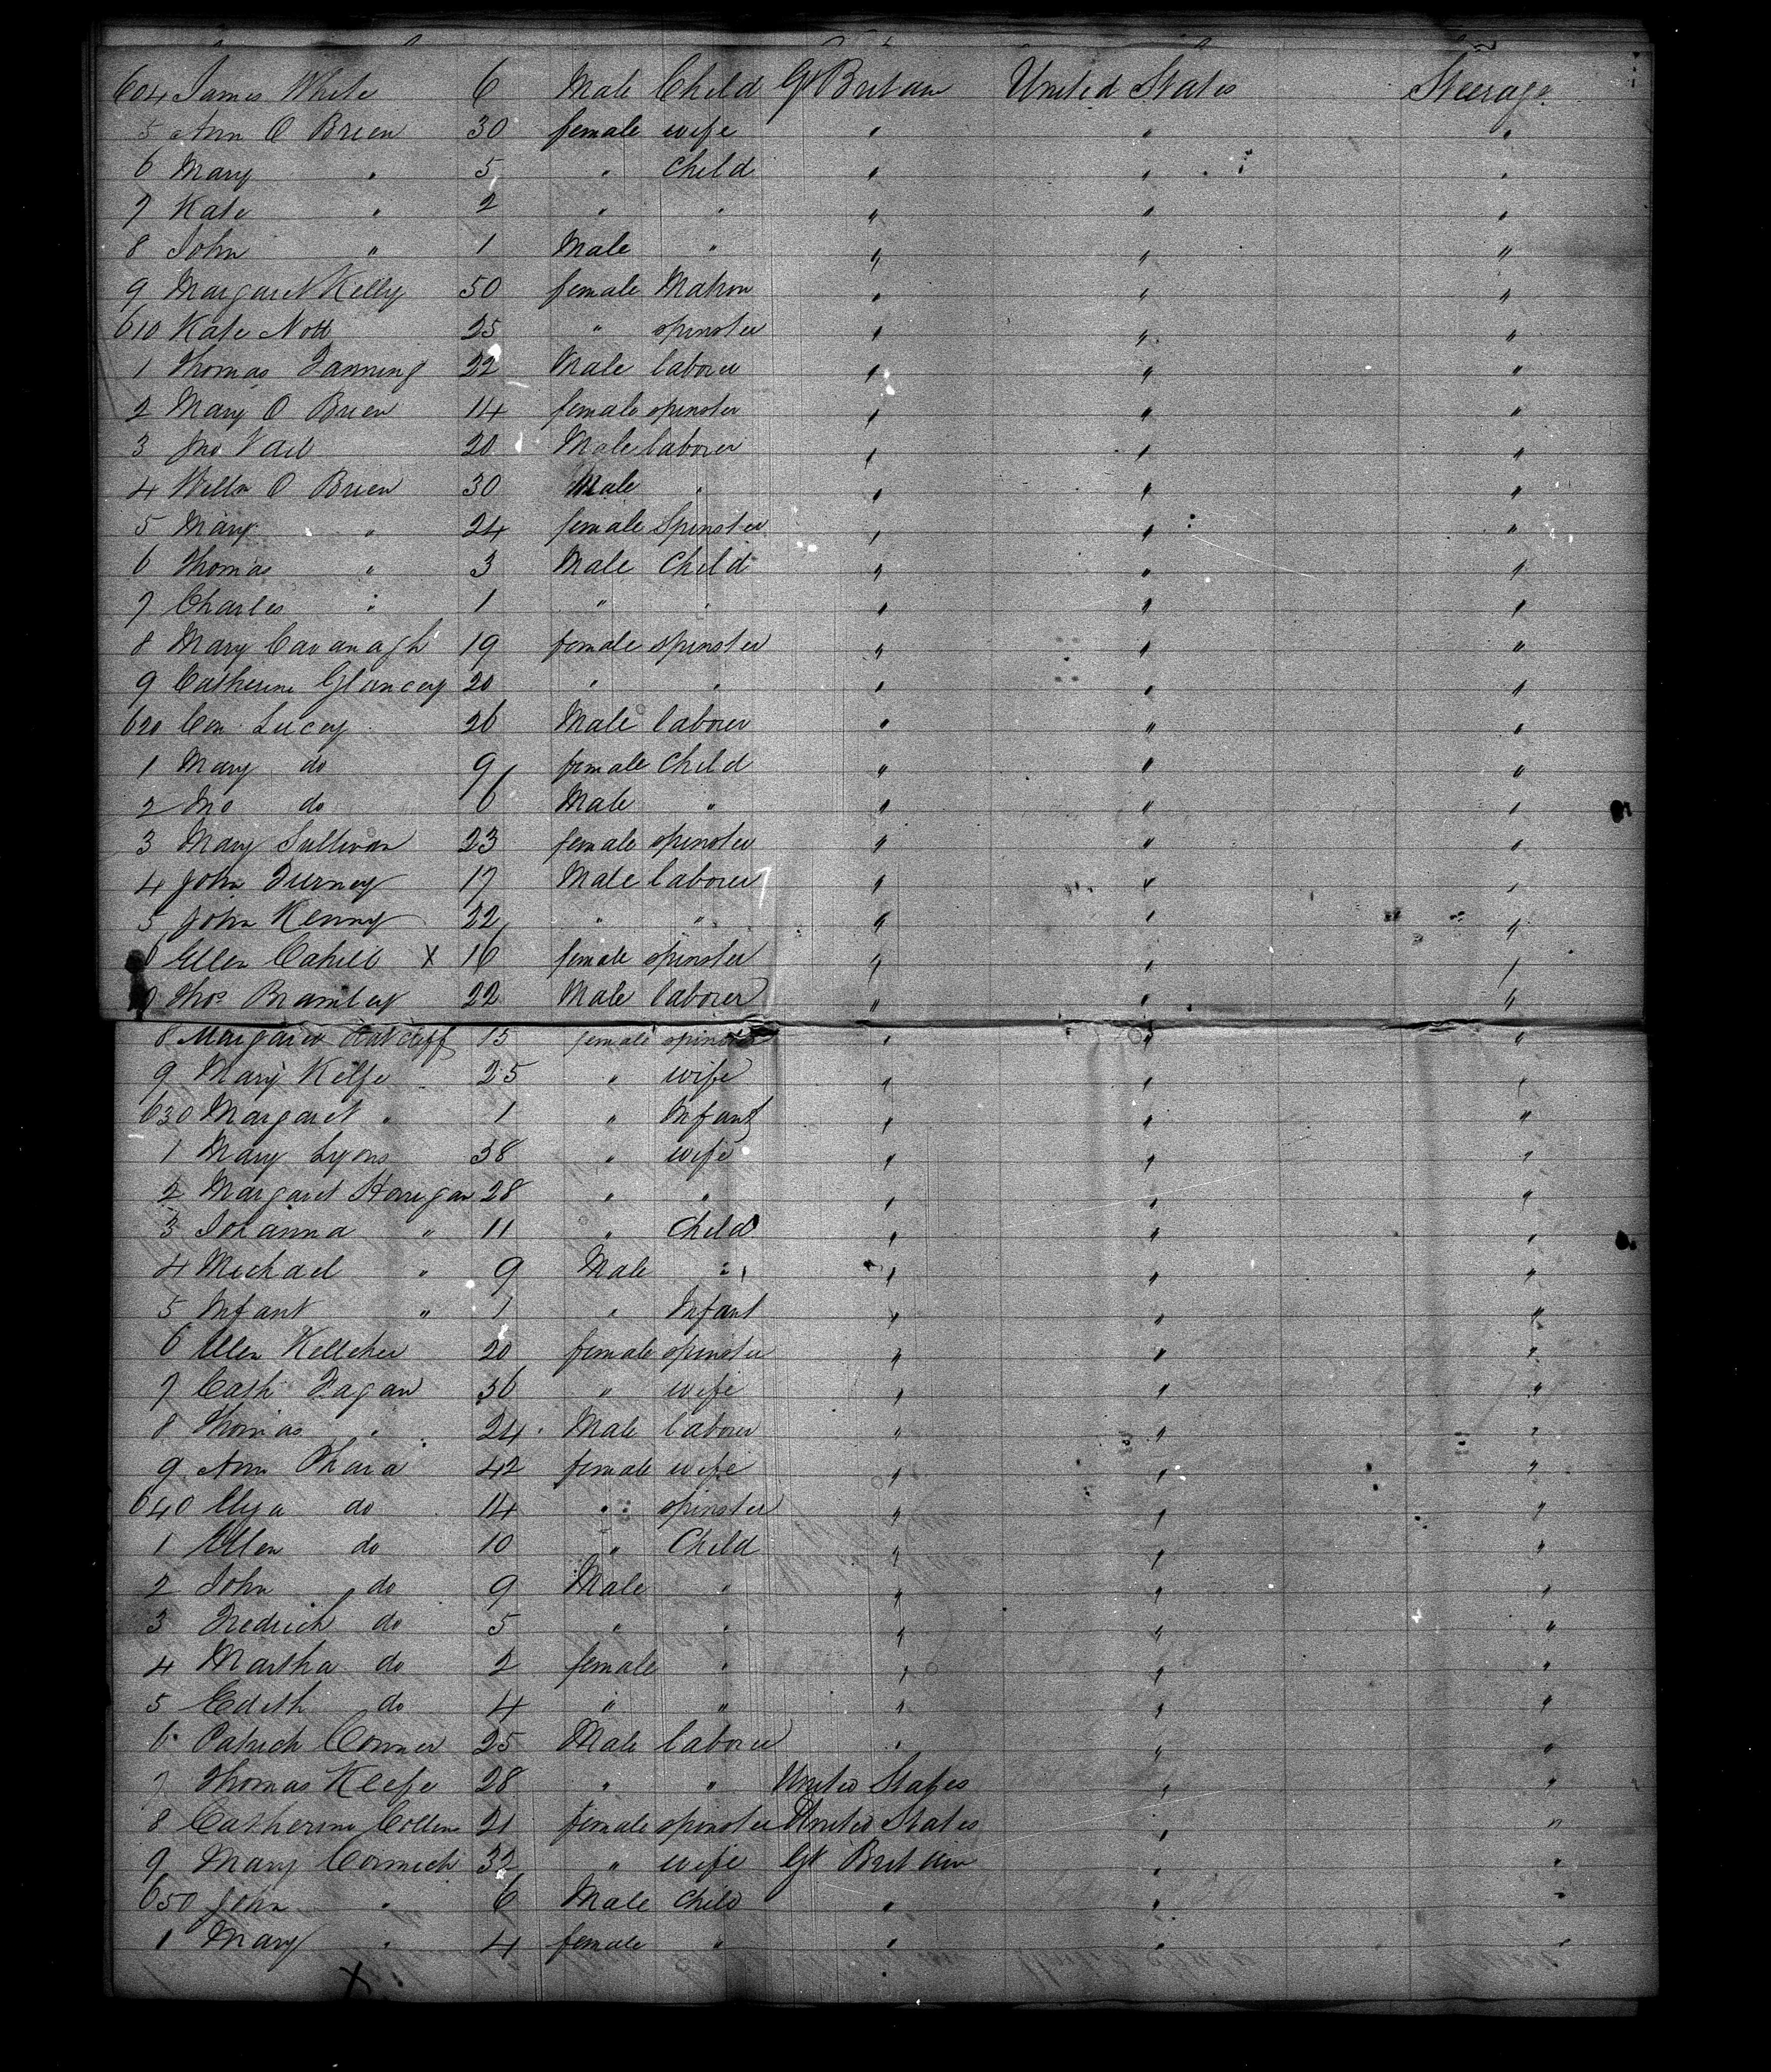 604 James White 6 Male Child Gt Britain United States Steerage
5 Ann O Brien 30 female wife " " "
6 Mary " 5 " child " " "
7 Kate " 2 " " " " "
8 John " 1 Male " " " "
9 Margaret Kelly 50 female Matron " " "
610 Kate Nott 25 " spinster " " "
1 Thomas Fanning 22 Male laborer " " "
2 Mary O Brien 14 female spinster " " "
3 Jno Vail 20 Male laborer " " "
4 Willm O Brien 30 Male " " " "
5 Mary " 24 female Spinster " " "
6 Thomas " 3 Male Child " " "
7 Charles " 1 " " " " "
8 Mary Cavanagh 19 female spinster " " "
9 Catherine Glancey 20 " " " " "
620 Con Lucey 26 Male laborer " " "
1 Mary do 9 female Child " " "
2 Jno do 6 Male " " " "
3 Mary Sullivan 23 female spinster " " "
4 John Furney 17 Male laborer " " "
5 John Kenny 22 " " " " "
6 Ellen Cahill X 16 female spinster " " "
Thos Bramley 22 Male laborer " " "
8 Margaret Ratcliff 15 female spinster " " "
9 Mary Kelfe 25 " wife " " "
630 Margaret " 1 " Infant " " "
1 Mary Lyons 38 " wife " " "
2 Margaret Horrigan 28 " " " " "
3 Johanna " 11 " Child " " "
4 Michael " 9 Male " " " "
5 Infant " 1 " Infant " " "
6 Ellen Kelleher 20 female spinster " " "
7 Cath Fagan 36 " wife " " "
8 Thomas " 24 Male laborer " " "
9 Ann Ohara 42 female wife " " "
640 Eliza do 14 " spinster " " "
1 Ellen do 10 " Child " " "
2 John do 9 Male " " " "
3 Fredrick do 5 " " " " "
4 Martha do 2 female " " " "
5 Edith do 4 " " " " "
6 Patrick Conner 25 Male laborer " " "
7 Thomas Keefe 28 " " United States " "
8 Catherine Collins 21 female spinster United States " "
9 Mary Cormick 32 " wife Gt Britain " "
650 John " 6 Male child " " "
1 Mary " 4 female " " " "
X